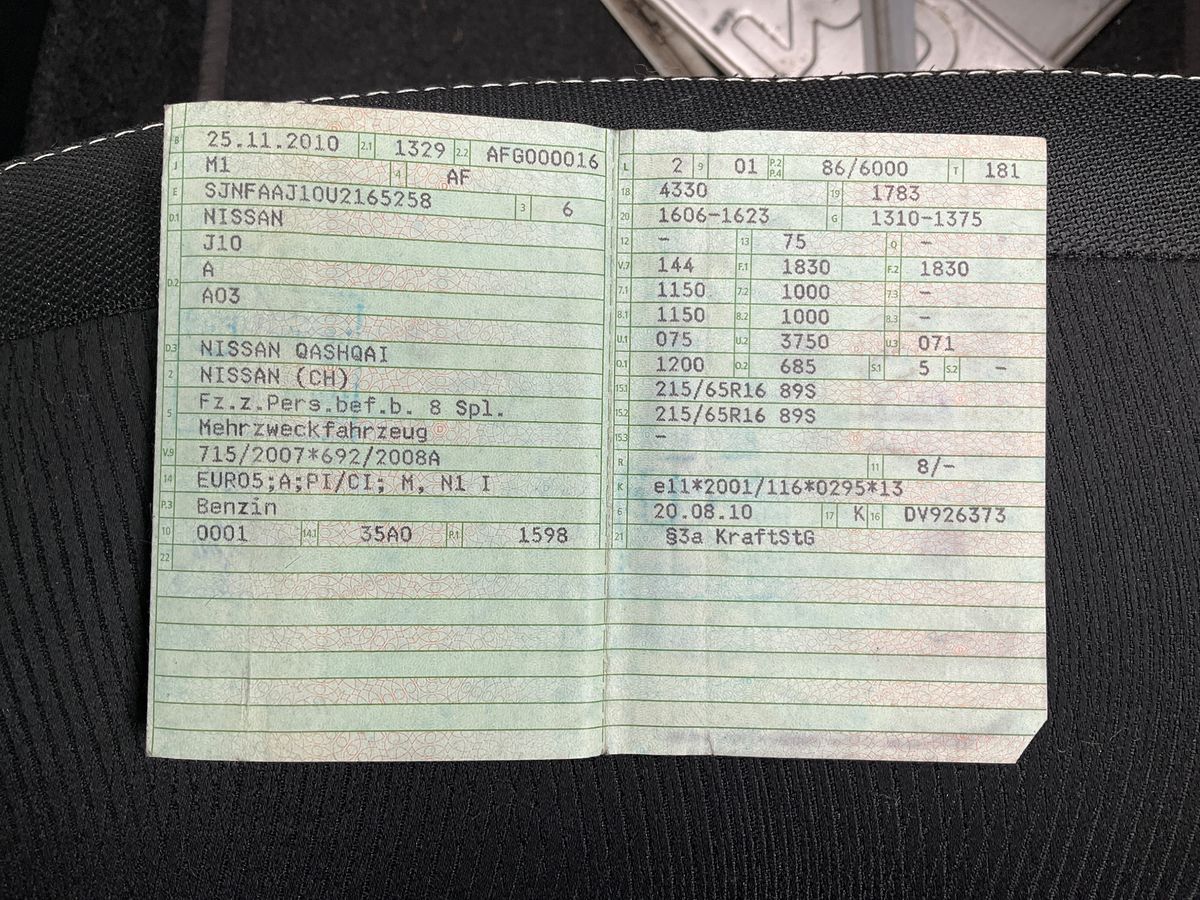 B 25.11.2010 2.1 1329 2.2 AFG000016
J M1 4 AF
E SJNFAAJ10U2165258 3 6
D.1 NISSAN
J10
D.2 A
A03
D.3 NISSAN QASHQAI
2 NISSAN (CH)
5 Fz.z.Pers.bef.b. 8 Spl.
Mehrzweckfahrzeug
V.9 715/2007*692/2008A
14 EURO5;A;PI/CI; M, N1 I
P.3 Benzin
10 0001 14.1 35A0 P.1 1598
22
L 2 9 01 P.2 P.4 86/6000 T 181
18 4330 19 1783
20 1606-1623 G 1310-1375
12 - 13 75 Q -
V.7 144 F.1 1830 F.2 1830
7.1 1150 7.2 1000 7.3 -
8.1 1150 8.2 1000 8.3 -
U.1 075 U.2 3750 U.3 071
O.1 1200 O.2 685 S.1 5 S.2 -
15.1 215/65R16 89S
15.2 215/65R16 89S
15.3 -
R 11 8/-
K e11*2001/116*0295*13
6 20.08.10 17 K 16 DV926373
21 §3a KraftStG